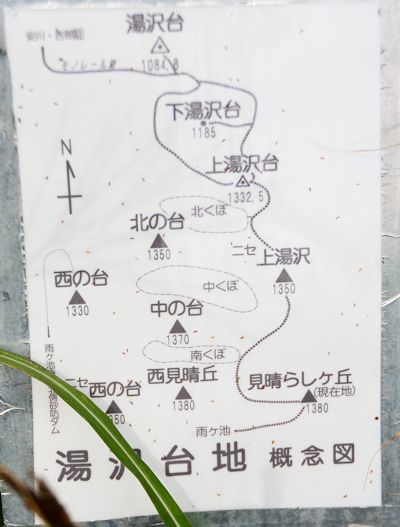 湯沢台
1084.8
モノレール
下湯沢台
1185
上湯沢台
1332.5
N
北くぼ
北の台
1350
ニセ
上湯沢
1350
西の台
1330
中くぼ
中の台
1370
南くぼ
雨ヶ池
砂防ダム
ニセ
西の台
西見晴丘
1380
見晴らしヶ丘
(現在地)
1380
雨ヶ池
湯沢台地 概念図